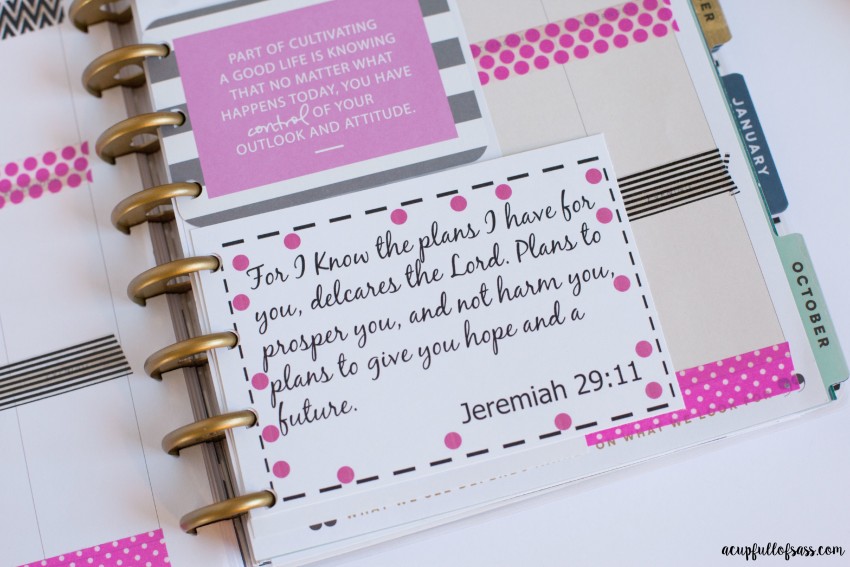 PART OF CULTIVATING
A GOOD LIFE IS KNOWING
THAT NO MATTER WHAT
HAPPENS TODAY, YOU HAVE
control OF YOUR
OUTLOOK AND ATTITUDE.
For I Know the plans I have for
you, delcares the Lord. Plans to
prosper you, and not harm you,
plans to give you hope and a
future.
Jeremiah 29:11
JANUARY
OCTOBER
ON WHAT WE LOOK FOR
WHAT WE SEE DEPENDS
acupfullofsass.com